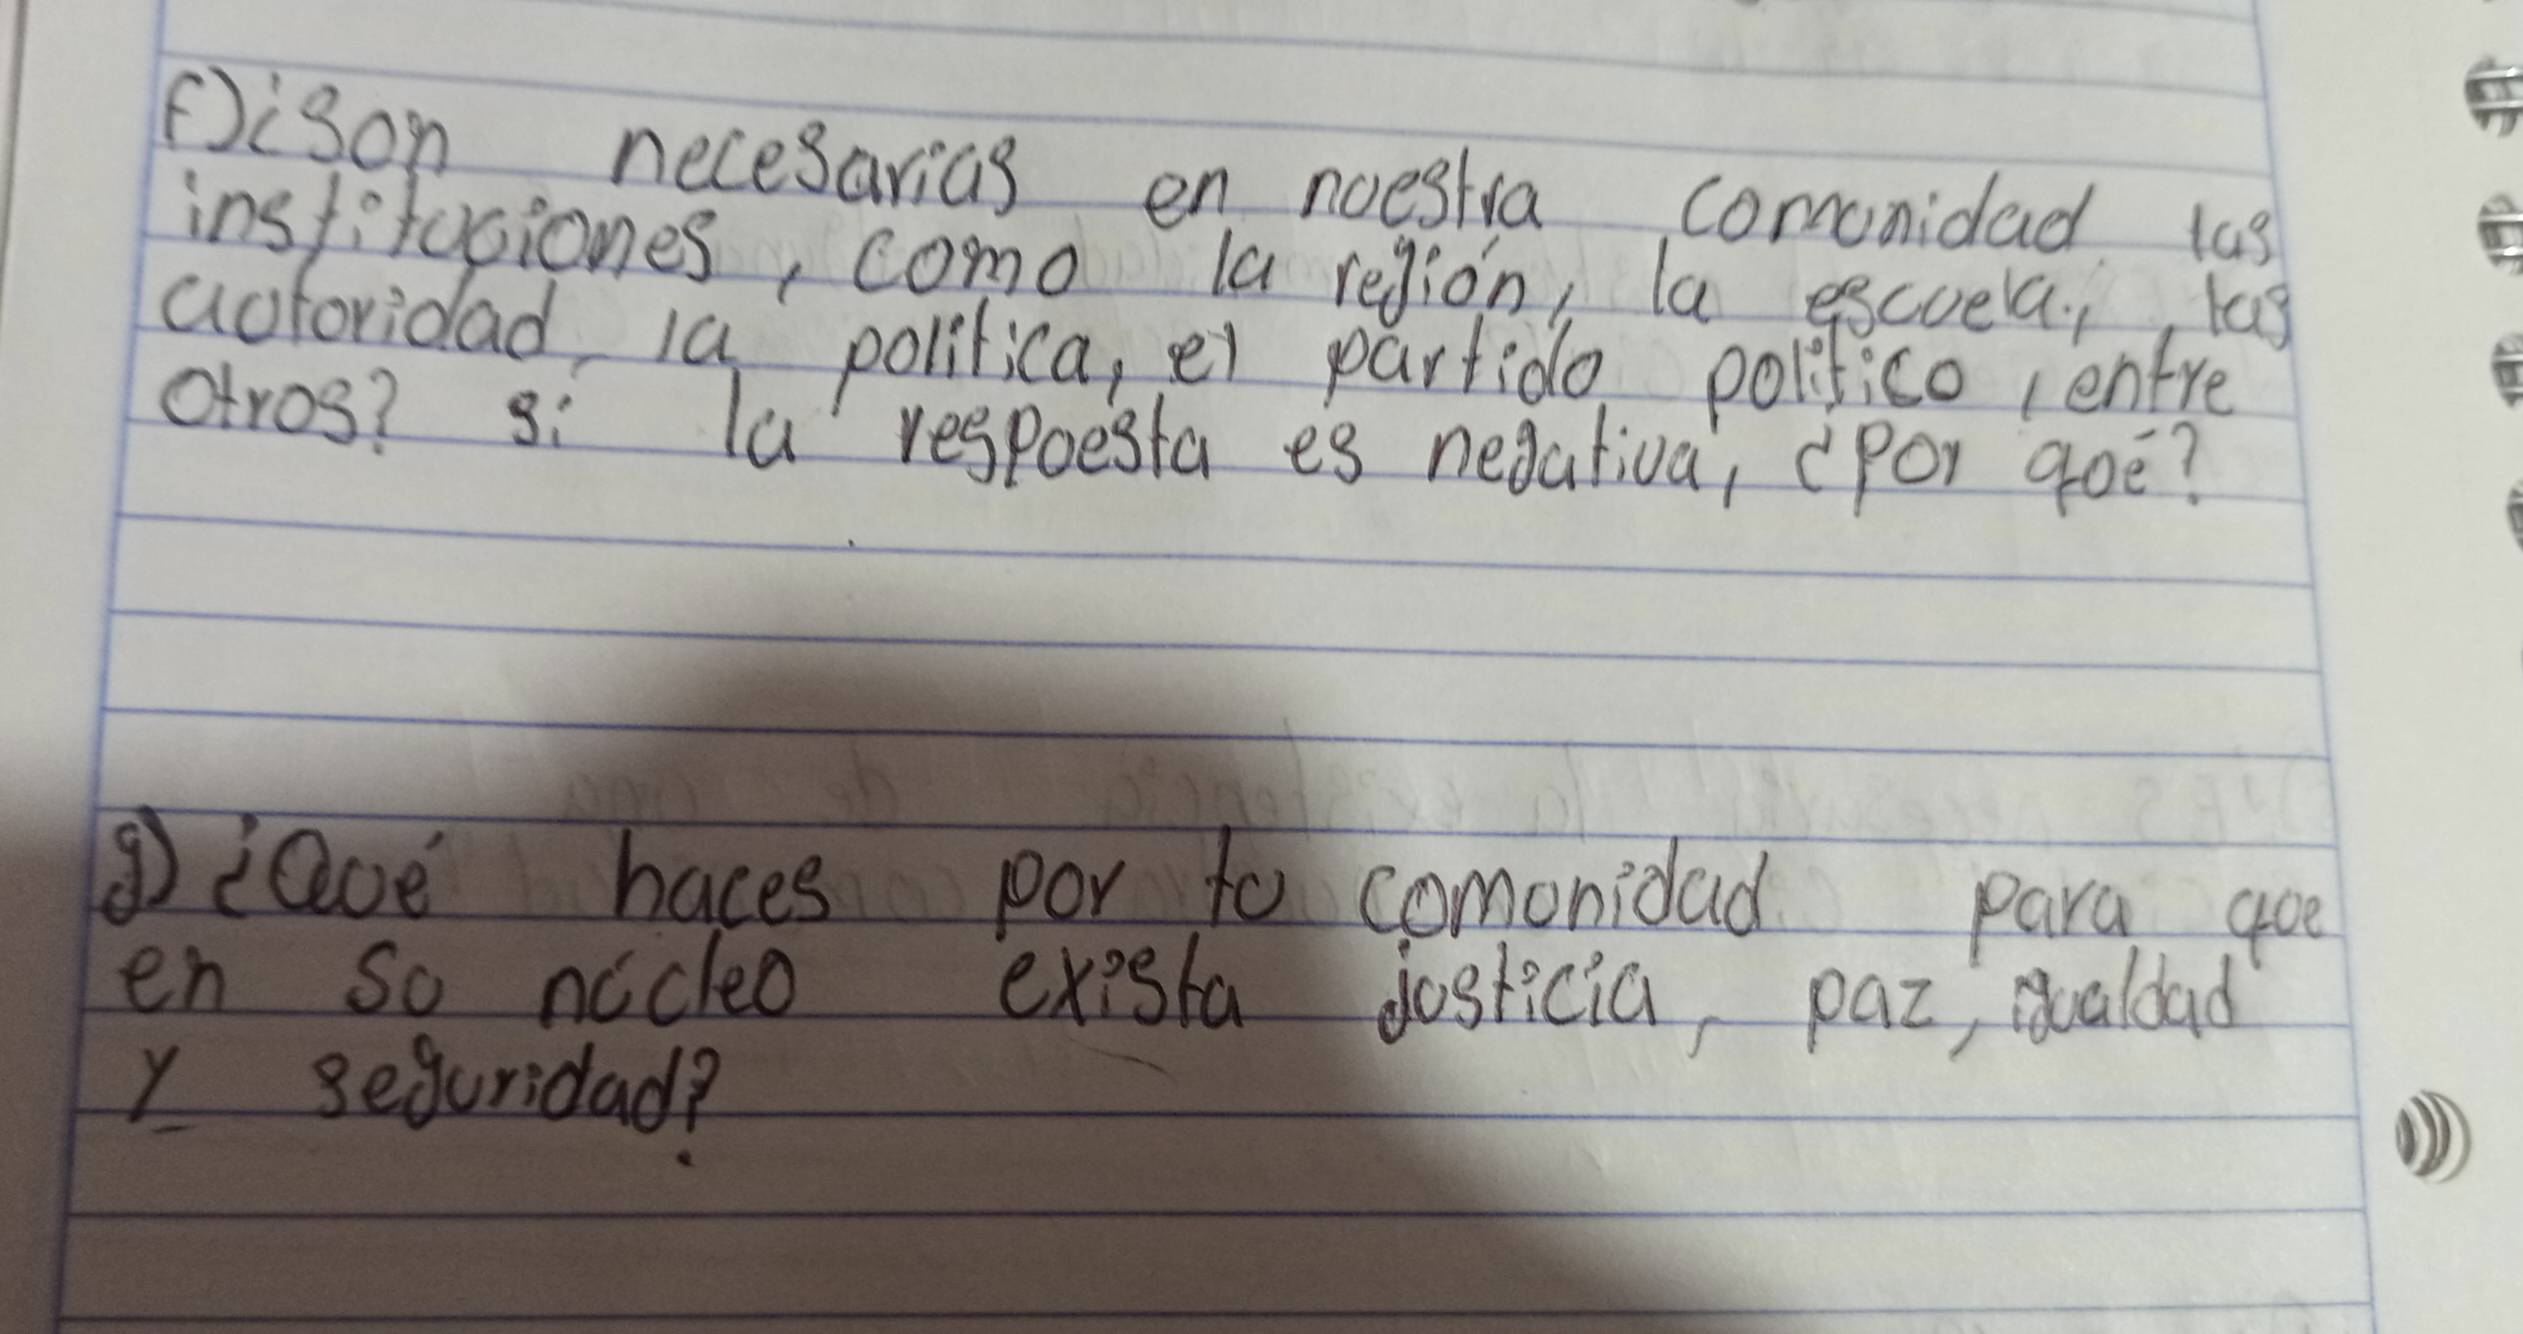 f) ¿Son necesarias en nuestra comunidad las
instituciones, como la región, la escuela, las
autoridad, la política, el partido político, entre
otros? si la respuesta es negativa, ¿Por qué?
g) ¿Qué haces por tu comunidad para que
en su núcleo exista justicia, paz, igualdad
y seguridad?